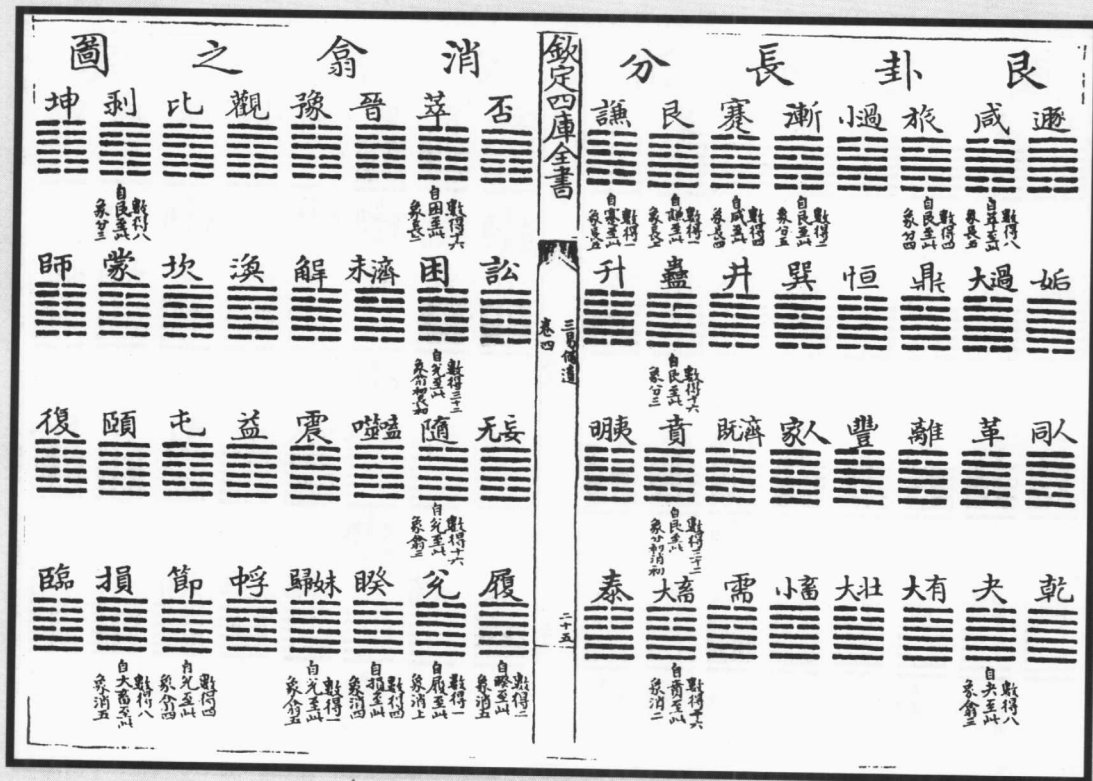 艮卦長分
遯 咸 旅 小過 漸 蹇 艮 謙
數得八
自萃至此
象長五
數得四
自艮至此
象分四
數得二
自艮至此
象分五
自咸至此
象長四
數得一
自謙至此
象長上
自蹇至此
象長五
姤 大過 鼎 恒 巽 井 蠱 升
數得十六
自艮至此
象分三
同人 革 離 豐 家人 既濟 賁 明夷
數得三十二
自艮至此
象分初消初
乾 夬 大有 大壯 小畜 需 大畜 泰
數得八
自夬至此
象翕三
數得十六
自賁至此
象消二
欽定四庫全書
三易備遺
卷四
二十五
消翕之圖
否 萃 晉 豫 觀 比 剥 坤
數得十六
自困至此
象長二
數得八
自艮至此
象分三
訟 困 未濟 解 渙 坎 蒙 師
數得三十二
自兊至此
象翕初長初
无妄 隨 噬嗑 震 益 屯 頤 復
數得十六
自兊至此
象翕二
履 兊 睽 歸妹 中孚 節 損 臨
數得二
自睽至此
象消五
數得一
自履至此
象消上
數得四
自損至此
象消四
自兊至此
象翕五
數得四
自兊至此
象翕四
數得八
自大畜至此
象消五